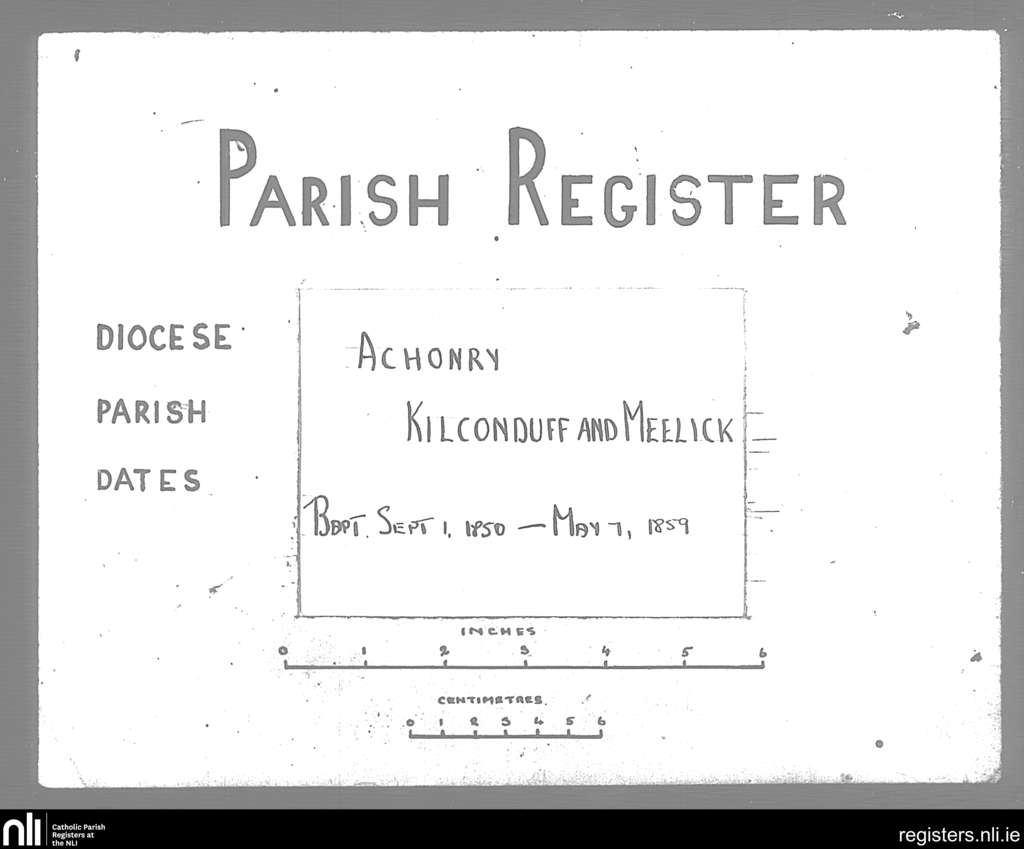 PARISH REGISTER
DIOCESE
ACHONRY
PARISH
KILCONDUFF AND MEELICK
DATES
BAPT. SEPT 1, 1850 — MAY 7, 1859
INCHES
0 1 2 3 4 5 6
CENTIMETRES
0 1 2 3 4 5 6
nli
Catholic Parish
Registers at
the NLI
registers.nli.ie